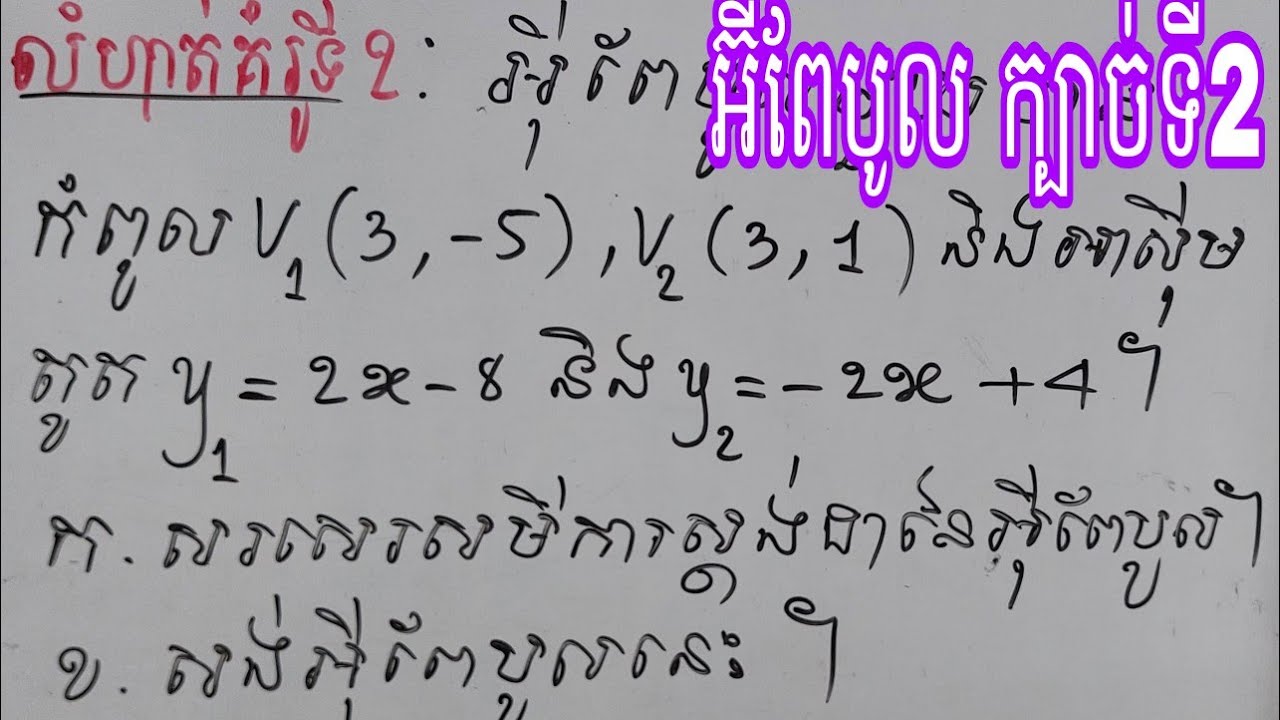 លំហាត់គំរូទី 2 : អ៊ីពែបូល
អ៊ីពែបូល ក្បាច់ទី2
កំពូល V₁ (3, -5) , V₂ (3, 1) និងអាស៊ីម
តូត y₁ = 2x - 8 និង y₂ = - 2x + 4 ។
ក. សរសេរសមីការស្តង់ដានៃអ៊ីពែបូល។
ខ. សង់អ៊ីពែបូលនេះ ។